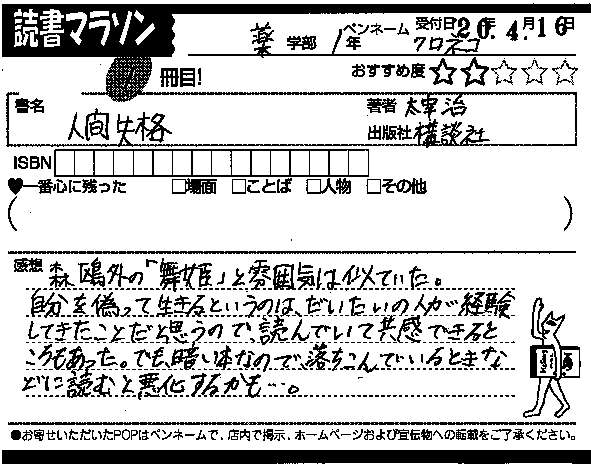 読書マラソン
薬 学部 1年 ペンネーム クロネコ 受付日 20年 4月 16日
冊目! おすすめ度 ☆☆☆☆☆
書名 人間失格 著者 太宰治
出版社 講談社
ISBN
♥一番心に残った □場面 □ことば □人物 □その他
( )
感想 森鴎外の「舞姫」と雰囲気は似ていた。
自分を偽って生きるというのは、だいたいの人が経験
してきたことだと思うので、読んでいて共感できると
ころもあった。でも、暗い本なので、落ちこんでいるときな
どに読むと悪化するかも…。
●お寄せいただいたPOPはペンネームで、店内で掲示、ホームページおよび宣伝物への転載をご了承ください。